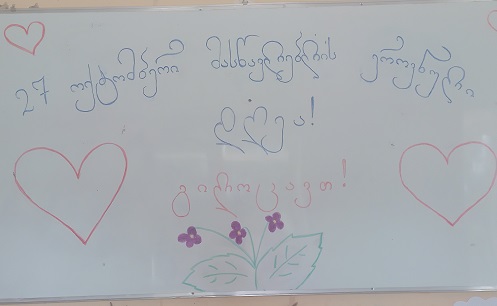 27 ოქტომბერი მასწავლებლის ეროვნული
დღეა!
გილოცავთ!